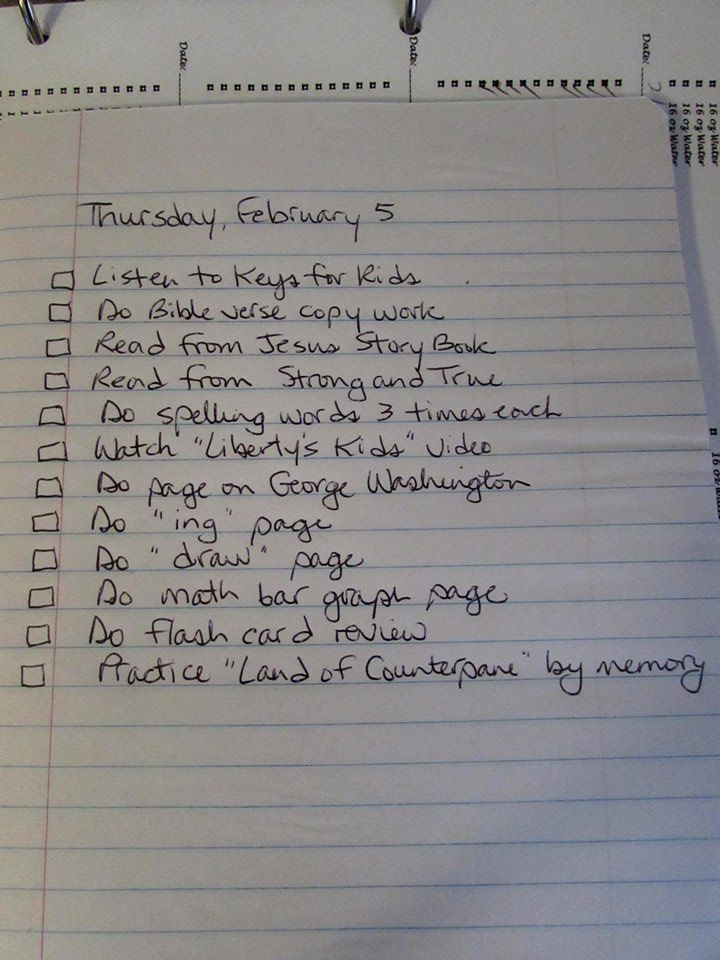 Date:
Date:
Date:
16 oz Water
16 oz Water
16 oz Water
16 oz Water
16 oz Water
Thursday, February 5
Listen to Keys for Kids
Do Bible verse copy work
Read from Jesus Story Book
Read from Strong and True
Do spelling words 3 times each
Watch "Liberty's Kids" video
Do page on George Washington
Do "ing" page
Do "draw" page
Do math bar graph page
Do flash card review
Practice "Land of Counterpane" by memory